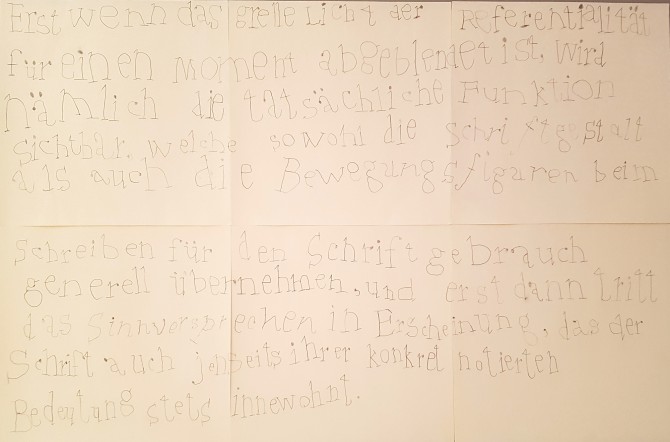 Erst wenn das grelle Licht der Referentialität
für einen Moment abgeblendet ist, wird
nämlich die tatsächliche Funktion
sichtbar, welche sowohl die Schriftgestalt
als auch die Bewegungsfiguren beim
Schreiben für den Schriftgebrauch
generell übernehmen, und erst dann tritt
das Sinnversprechen in Erscheinung, das der
Schrift auch jenseits ihrer konkret notierten
Bedeutung stets innewohnt.